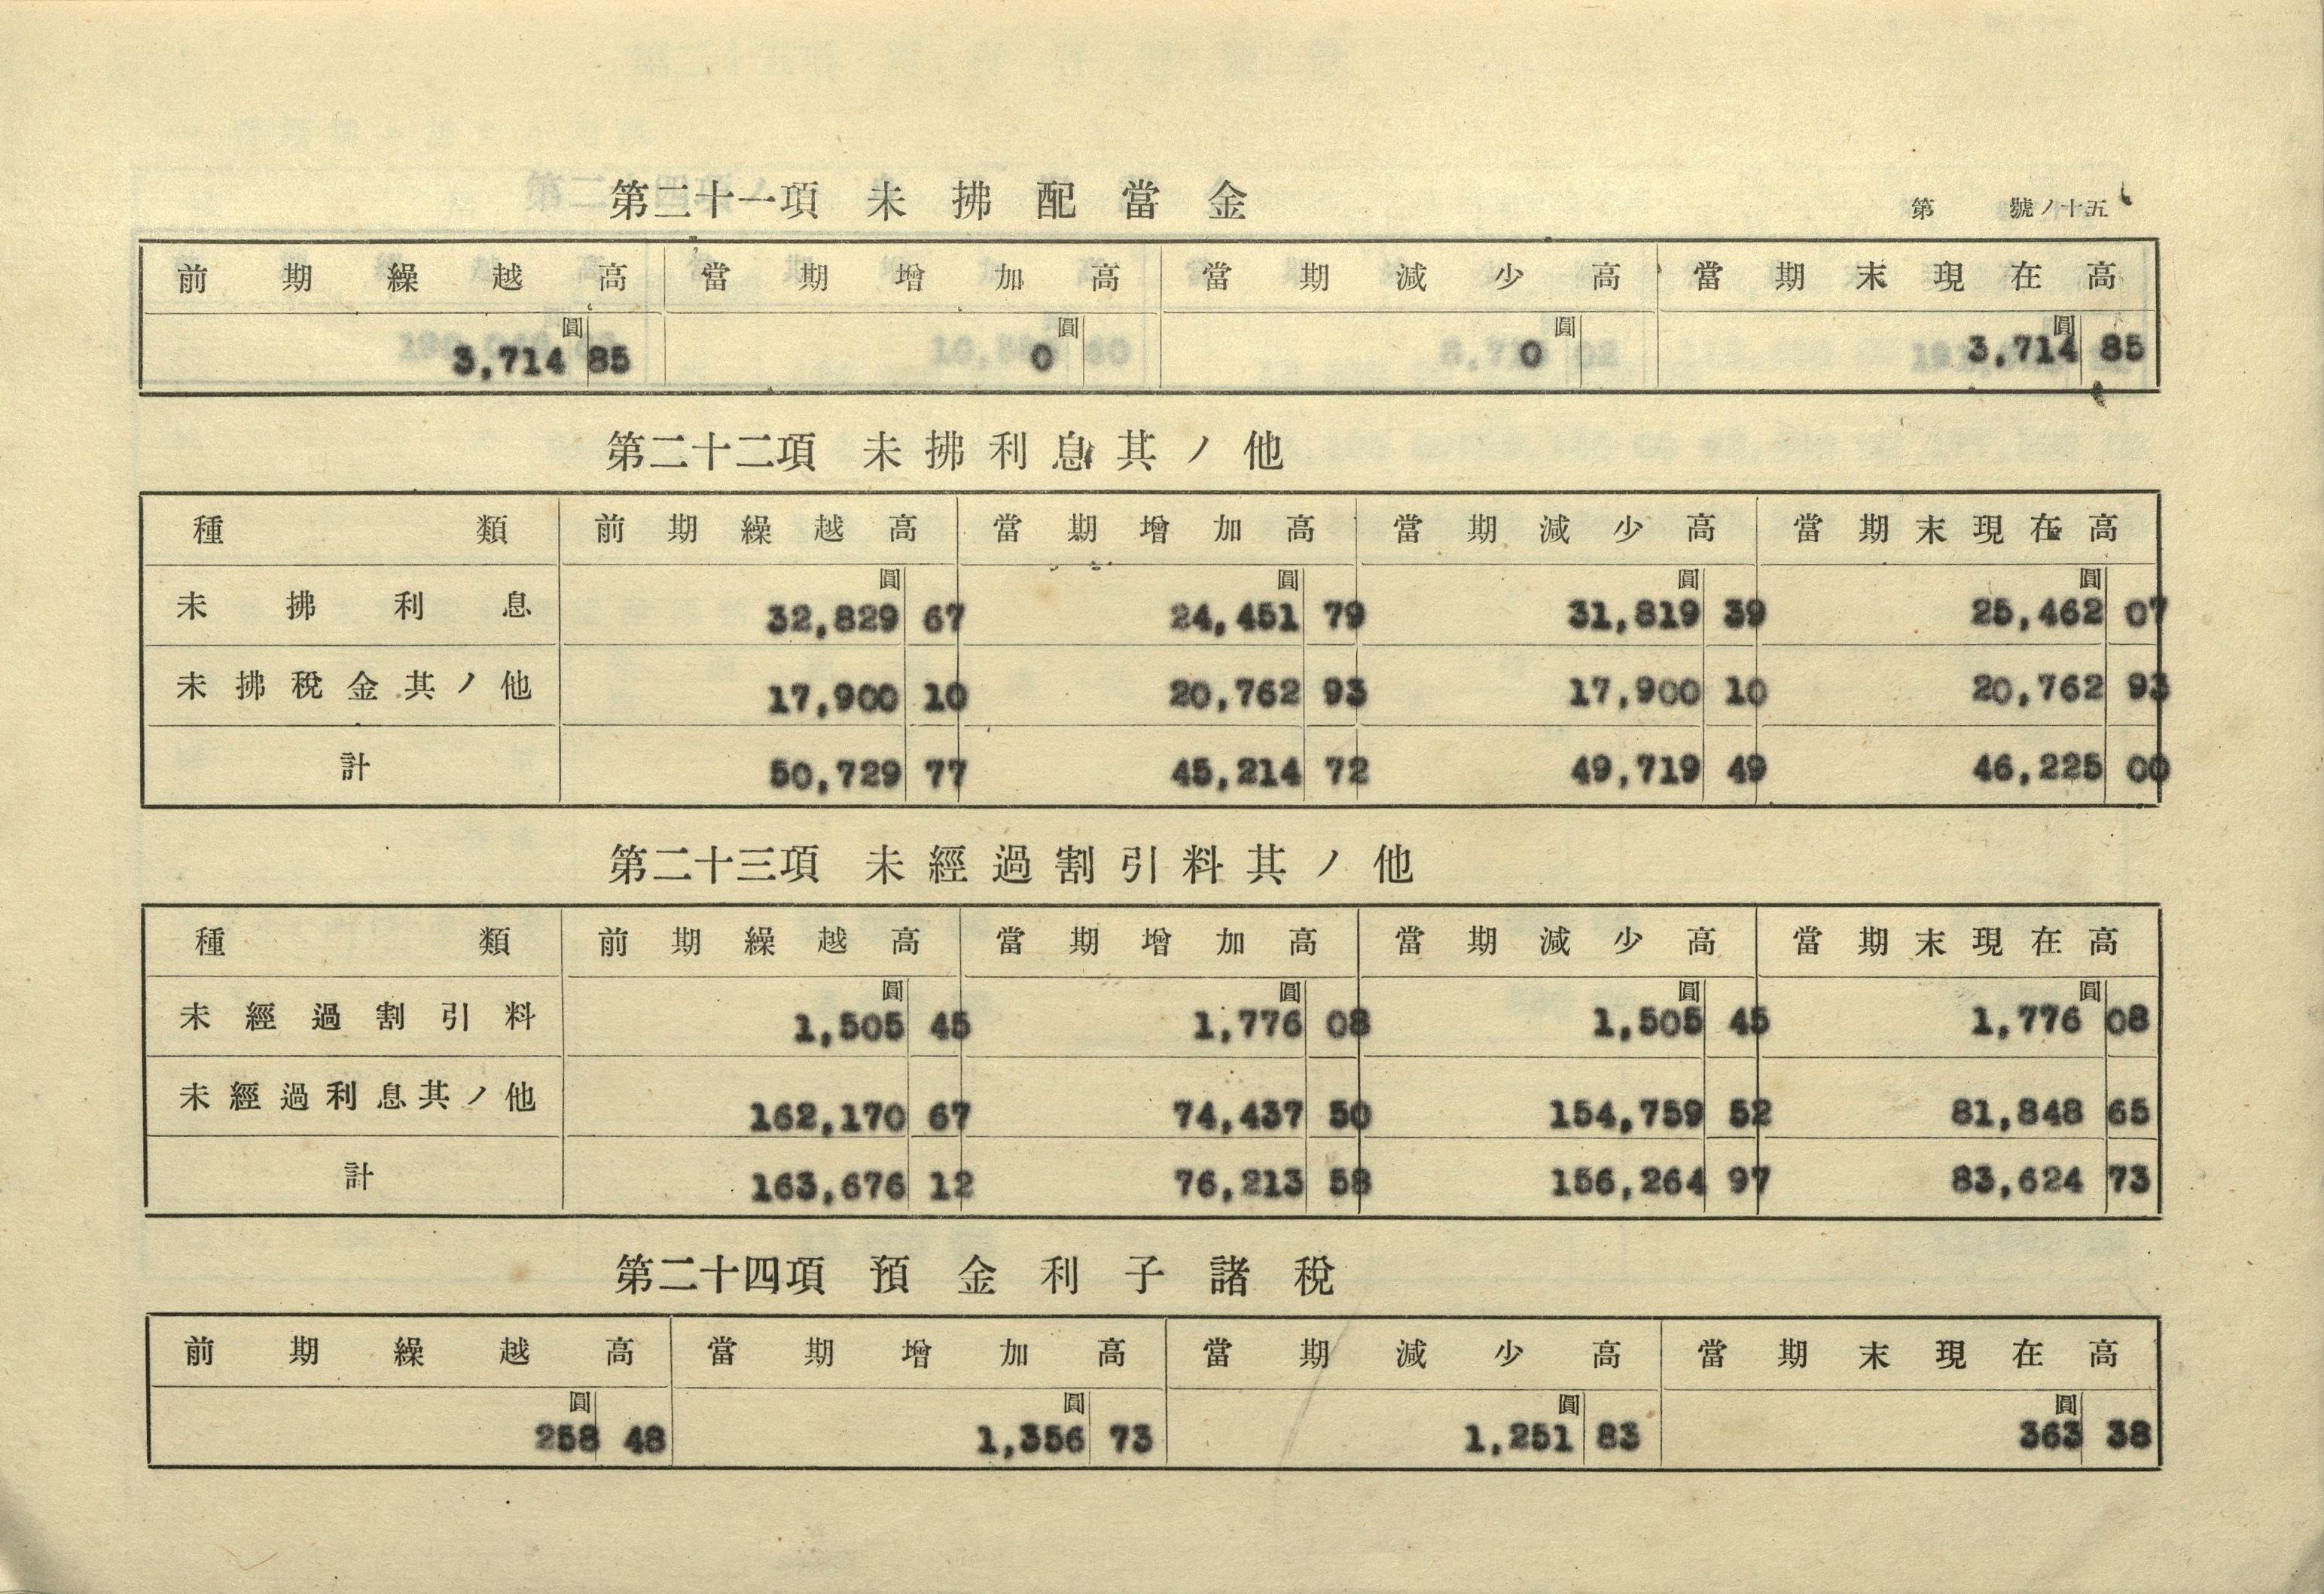 第二十一項 未拂配當金
第 號ノ十五
前期繰越高 當期增加高 當期減少高 當期末現在高
圓 圓 圓 圓
3,714 85 0 0 3,714 85
第二十二項 未拂利息其ノ他
種類 前期繰越高 當期增加高 當期減少高 當期末現在高
圓 圓 圓 圓
未拂利息 32,829 67 24,451 79 31,819 39 25,462 07
未拂稅金其ノ他 17,900 10 20,762 93 17,900 10 20,762 93
計 50,729 77 45,214 72 49,719 49 46,225 00
第二十三項 未經過割引料其ノ他
種類 前期繰越高 當期增加高 當期減少高 當期末現在高
圓 圓 圓 圓
未經過割引料 1,505 45 1,776 08 1,505 45 1,776 08
未經過利息其ノ他 162,170 67 74,437 50 154,759 52 81,848 65
計 163,676 12 76,213 58 156,264 97 83,624 73
第二十四項 預金利子諸稅
前期繰越高 當期增加高 當期減少高 當期末現在高
圓 圓 圓 圓
258 48 1,356 73 1,251 83 363 38